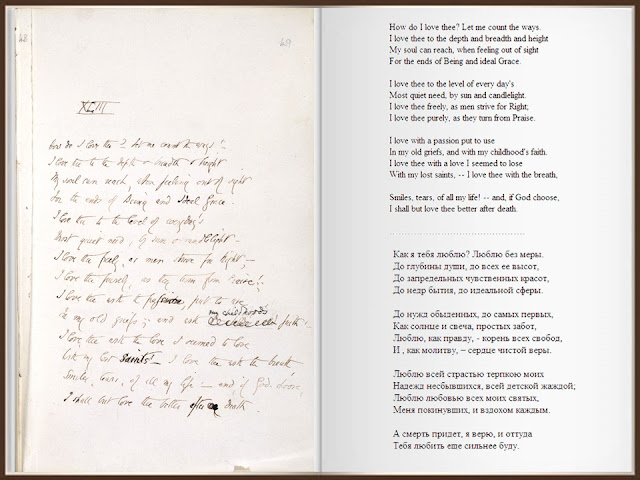 49
XLIII
How do I love thee? Let me count the ways!
I love thee to the depth & breadth & height
My soul can reach, when feeling out of sight
For the ends of Being and Ideal Grace.
I love thee to the level of everyday's
Most quiet need, by sun & candlelight—
I love thee freely, as men strive for Right,—
I love thee purely, as they turn from Praise!
I love thee with the passion, put to use
In my old griefs,.. and with my childhood's faith:
I love thee with the love I seemed to lose
With my lost Saints!— I love thee with the breath
Smiles, tears, of all my life!— and, if God choose,
I shall but love thee better after death.
How do I love thee? Let me count the ways.
I love thee to the depth and breadth and height
My soul can reach, when feeling out of sight
For the ends of Being and ideal Grace.
I love thee to the level of every day's
Most quiet need, by sun and candlelight.
I love thee freely, as men strive for Right;
I love thee purely, as they turn from Praise.
I love with a passion put to use
In my old griefs, and with my childhood's faith.
I love thee with a love I seemed to lose
With my lost saints, -- I love thee with the breath,
Smiles, tears, of all my life! -- and, if God choose,
I shall but love thee better after death.
Как я тебя люблю? Люблю без меры.
До глубины души, до всех ее высот,
До запредельных чувственных красот,
До недр бытия, до идеальной сферы.
До нужд обыденных, до самых первых,
Как солнце и свеча, простых забот,
Люблю, как правду, - корень всех свобод,
И , как молитву, – сердце чистой веры.
Люблю всей страстью терпкою моих
Надежд несбывшихся, всей детской жаждой;
Люблю любовью всех моих святых,
Меня покинувших, и вздохом каждым.
А смерть придет, я верю, и оттуда
Тебя любить еще сильнее буду.